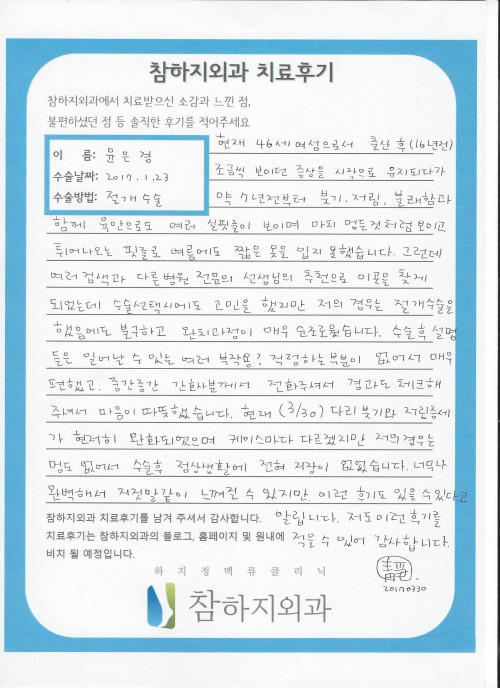 참하지외과 치료후기
참하지외과에서 치료받으신 소감과 느낀 점,
불편하셨던 점 등 솔직한 후기를 적어주세요
이 름: 윤은경
수술날짜: 2017.1.23
수술방법: 절개수술
현재 46세 여성으로서 출산 후 (16년전)
조금씩 보이던 증상을 시작으로 유지되다가
약 7년전부터 붓기. 저림, 불쾌함과
함께 육안으로도 여러 실핏줄이 보이며 마치 멍든것처럼 보이고
튀어나오는 핏줄로 여름에도 짧은 옷을 입지 못했습니다. 그런데
여러검색과 다른병원 전문의 선생님의 추천으로 이곳을 찾게
되었는데 수술선택시에도 고민을 했지만 저의 경우는 절개수술을
했음에도 불구하고 완치과정이 매우 순조로웠습니다. 수술후 설명
들은 일어날 수 있는 여러 부작용? 걱정하는부분이 없어서 매우
편했고. 중간중간 간호사분께서 전화주셔서 경과도 체크해
주셔서 마음이 따뜻했습니다. 현재 (3/30) 다리 붓기와 저린증세
가 현저히 완화되었으며 케이스마다 다르겠지만 저의경우는
멍도 없어서 수술후 정상생활에 전혀 지장이 없었습니다. 너무나
완벽해서 거짓말같이 느껴질 수 있지만. 이런 후기도 있을 수 있다고
알립니다. 저도 이런 후기를
적을 수 있어 감사합니다.
20170330
참하지외과 치료후기를 남겨 주셔서 감사합니다.
치료후기는 참하지외과의 블로그, 홈페이지 및 원내에
비치 될 예정입니다.
하지정맥류클리닉
참하지외과